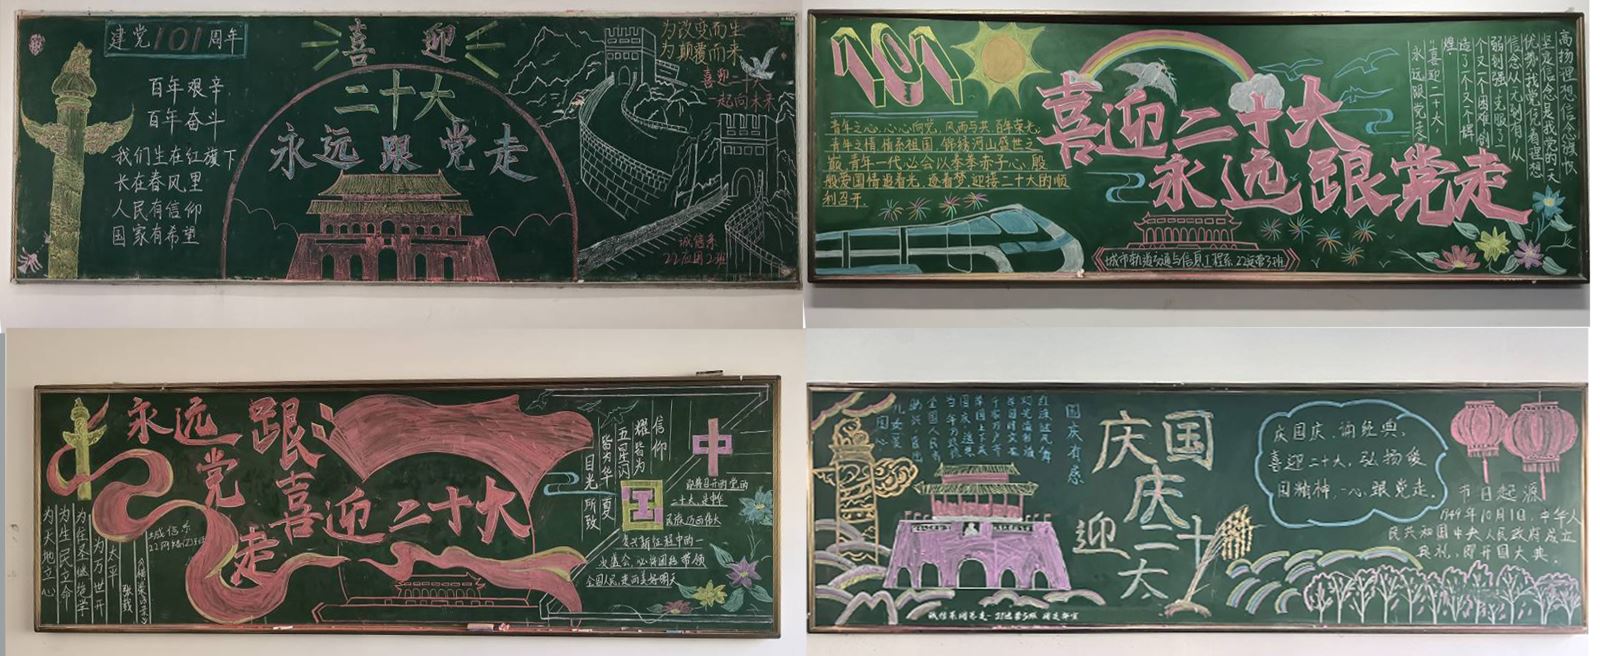 建党101周年
喜迎
二十大
永远跟党走
百年艰辛
百年奋斗
我们生在红旗下
长在春风里
人民有信仰
国家有希望
为改变而生
为颠覆而来
喜迎二十大
一起向未来
诚信系
101
喜迎二十大
永远跟党走
青年之心,心心向党,风雨与共,百年荣光。
青年之情,情系祖国,锦绣河山盛世之
青年一代必会以拳拳赤子心、殷
殷爱国情追着光,逐着梦,迎接二十大的顺
利召开。
高扬理想信念旗帜
坚定信念是我党的一大
优势,我党凭着理想
信念从无到有,从
弱到强,克服了一
个又一个困难,创
造了一个又一个辉
煌。
"喜迎二十大,
永远跟党走"
城市轨道交通与信息工程系
永远跟
党走
喜迎二十大
为天地立心
为生民立命
为往圣继绝学
为万世开
太平
张载
城信系
信仰
耀皆为
五星闪
皆为华夏
目光所致
中国
即将召开的党的
二十大,是中华
民族历史伟大
复兴新征程中的一
次盛会,必将团结带领
全国人民走向美好明天
国庆有感
庆国庆
迎二十大
庆国庆,诵经典,
喜迎二十大,弘扬爱
国精神,一心跟党走。
节日起源
1949年10月1日,中华人
民共和国中央人民政府成立
典礼,即开国大典。